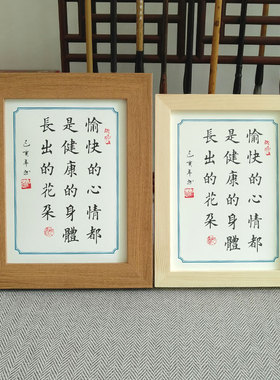 愉快的心情都
是健康的身體
長出的花朵
己亥年
愉快的心情都
是健康的身體
長出的花朵
己亥年